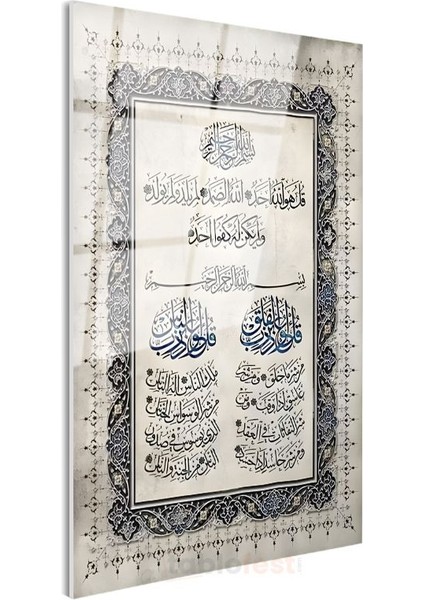 بسم الله الرحمن الرحيم
قل هو الله أحد الله الصمد لم يلد ولم يولد
ولم يكن له كفوا أحد
بسم الله الرحمن الرحيم
قل أعوذ برب الفلق
من شر ما خلق ومن شر
غاسق إذا وقب ومن
شر النفاثات في العقد
ومن شر حاسد إذا حسد
قل أعوذ برب الناس
ملك الناس إله الناس
من شر الوسواس الخناس
الذي يوسوس في صدور
الناس من الجنة والناس
tablofest